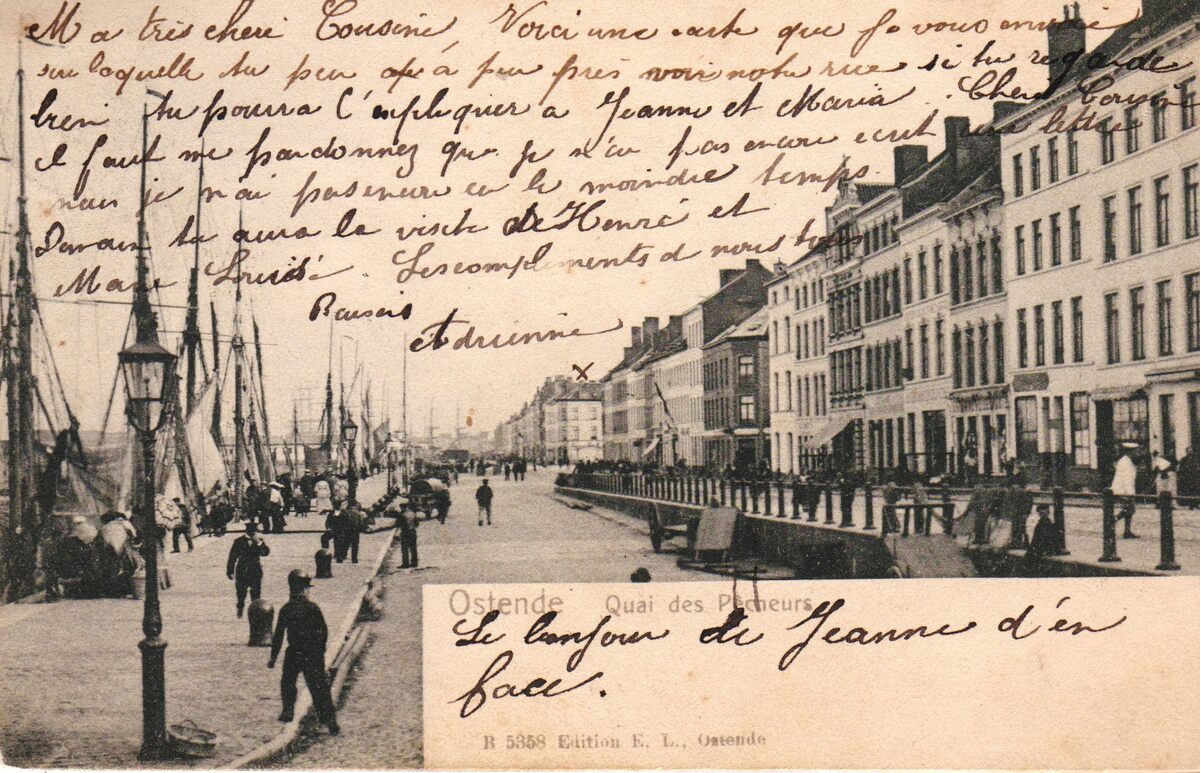 Ma très cheri Cousine Voici une carte que je vous envoie
sur laquelle tu peu a peu près voir notre rue si tu regarde
bien tu pourra l'expliquer a Jeanne et Maria. Cher Cousine
il faut me pardonnez que je n'ai pas encore ecrit une lettre
mais je n'ai pas encore eu le moindre temps
Demain tu aura la visite de Henré et
Marie Louise. Les compliments d nous tous
Baisers
Adrienne
x
Ostende Quai des Pêcheurs
Le bonjour de Jeanne d'én
face.
B 5358 Edition E. L., Ostende